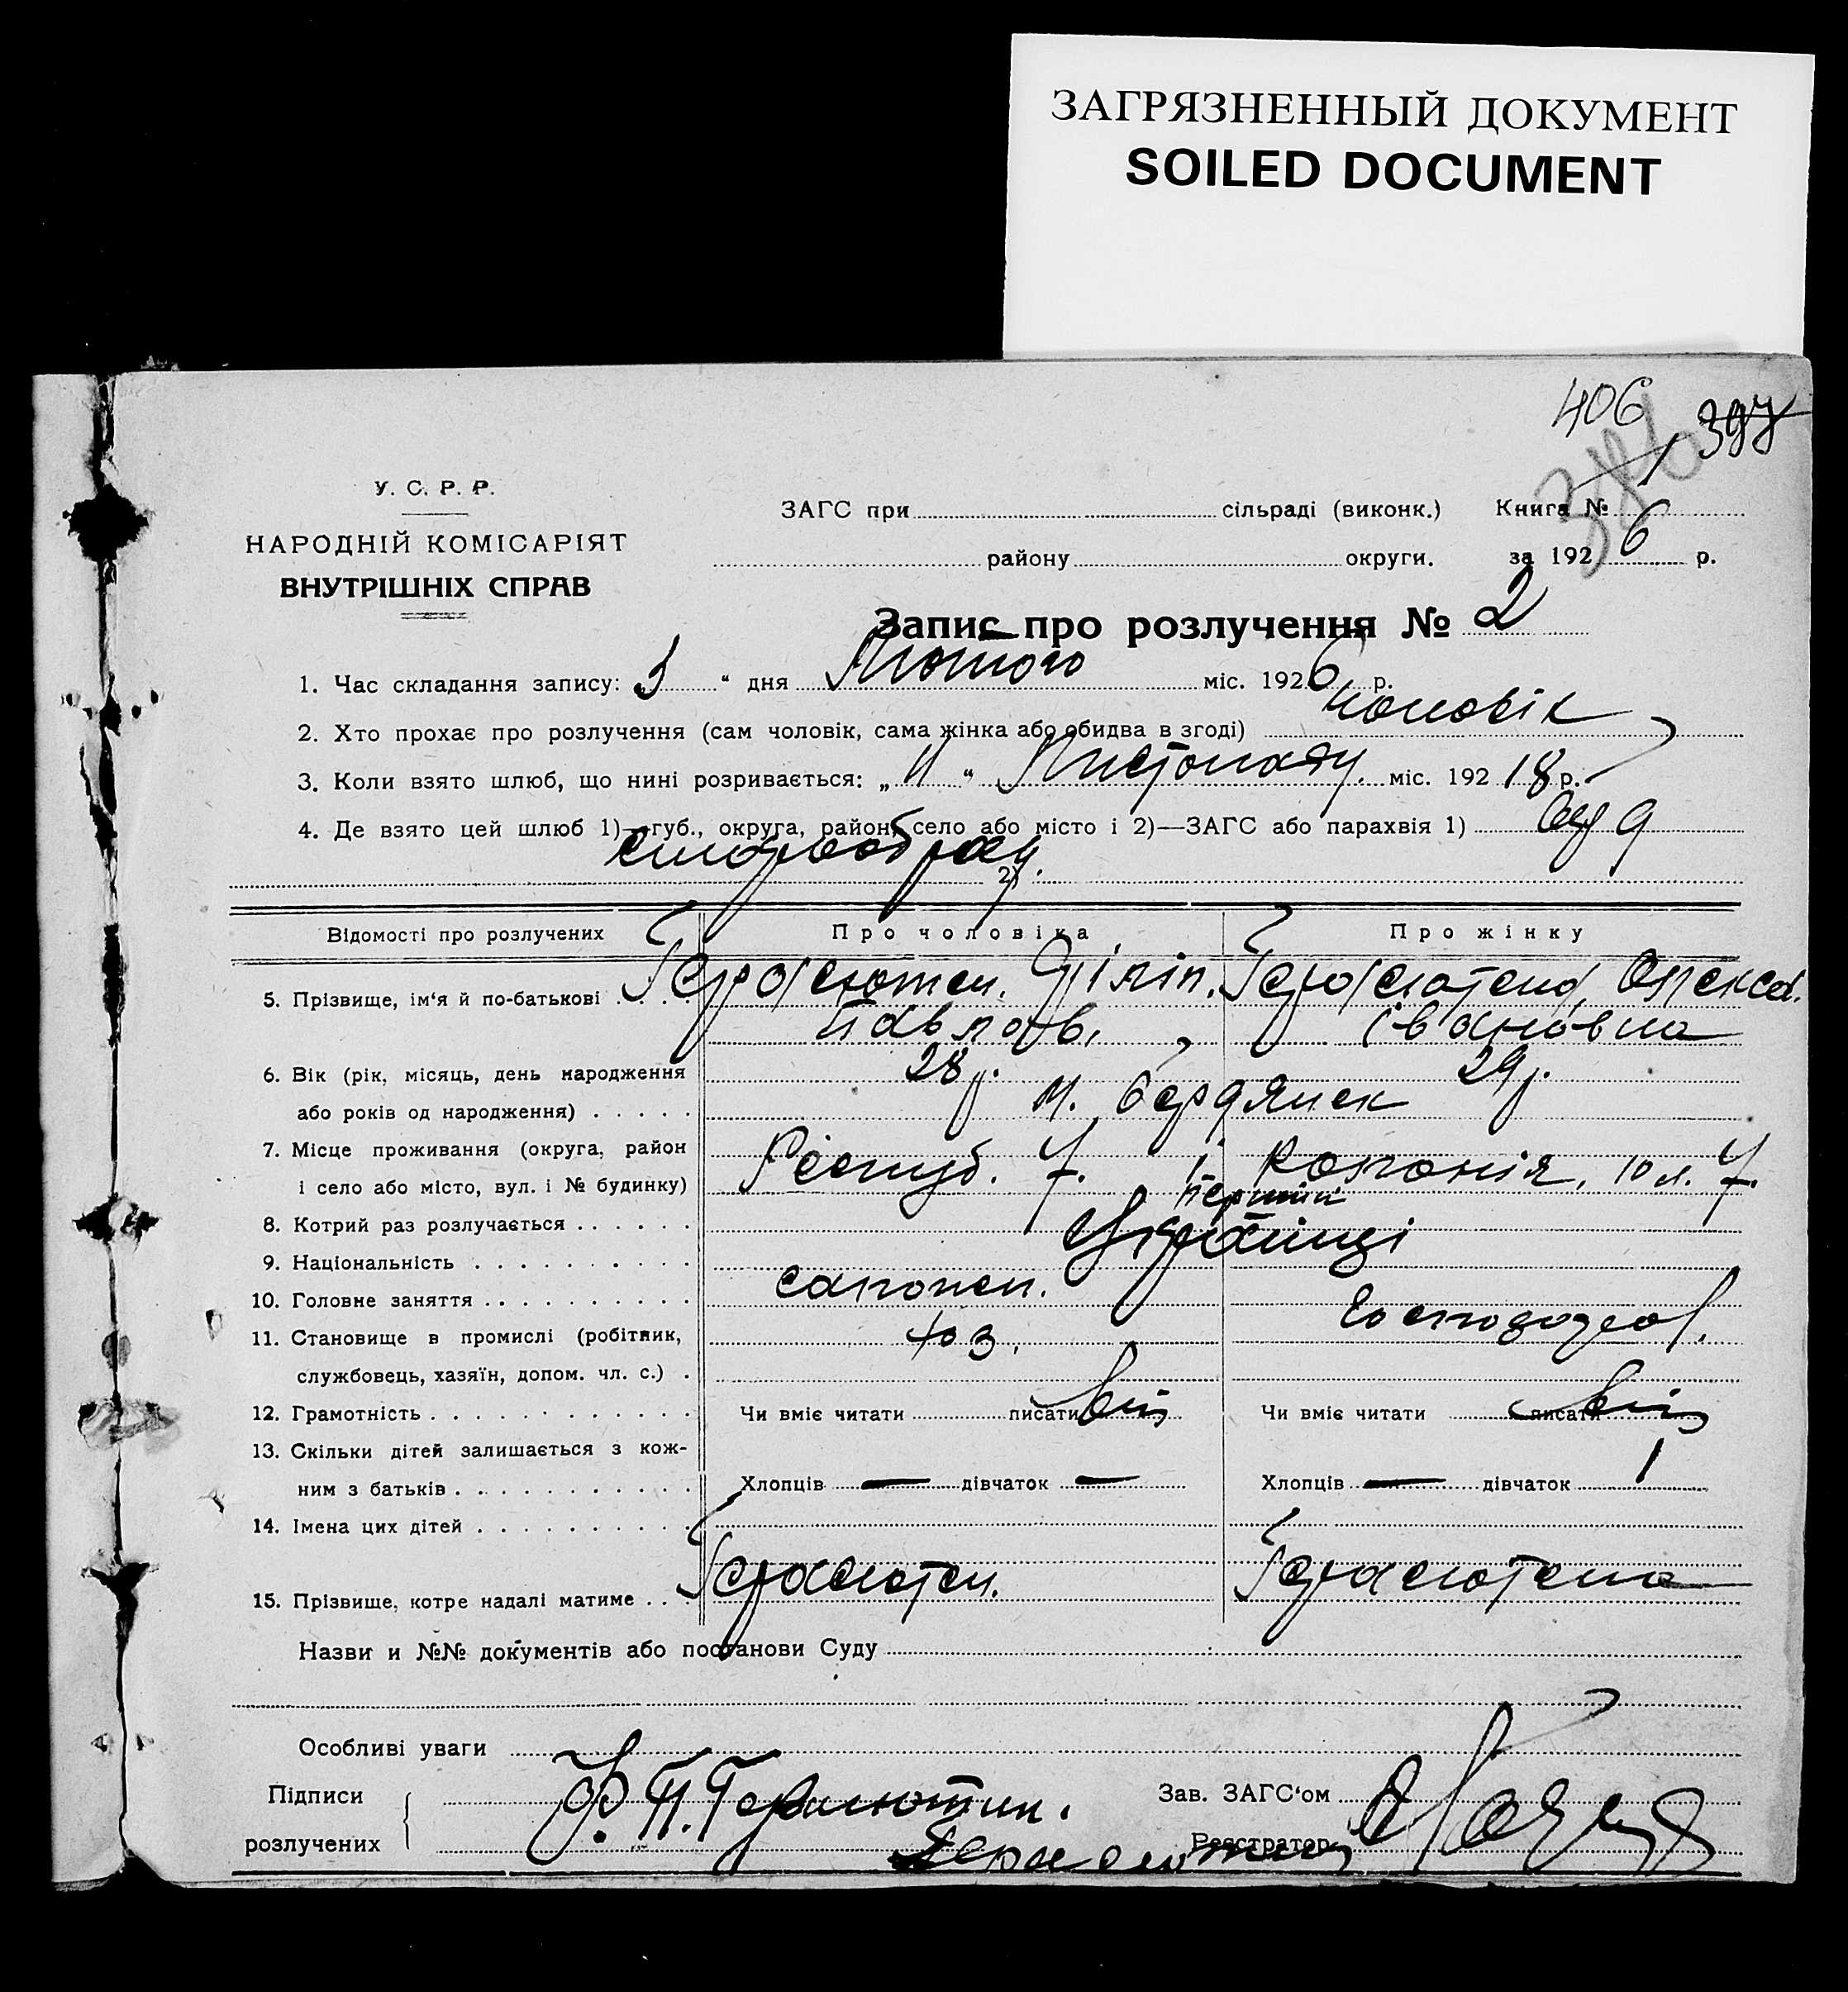 ЗАГРЯЗНЕННЫЙ ДОКУМЕНТ
SOILED DOCUMENT
406
397
У. С. Р. Р.
НАРОДНІЙ КОМІСАРІЯТ
ВНУТРІШНІХ СПРАВ
ЗАГС при сільраді (виконк.) Книга №
району округи. за 1926 р.
Запис про розлучення № 2
1. Час складання запису: 3 " дня Лютого міс. 1926 р.
2. Хто прохає про розлучення (сам чоловік, сама жінка або обидва в згоді) чоловік
3. Коли взято шлюб, що нині розривається: „ 11 " Листопаду міс. 192 18 р.
4. Де взято цей шлюб 1)—губ., округа, район, село або місто і 2)—ЗАГС або парахвія 1)
2)
Відомості про розлучених Про чоловіка Про жінку
5. Прізвище, ім'я й по-батькові Герасютен. Філіп. Герасютена Олексад.
Павлов. Івановна
6. Вік (рік, місяць, день народження 28 р. 29 р.
або років од народження) м. Бердянск
7. Місце проживання (округа, район
і село або місто, вул. і № будинку) Республ. 7. Колонія, 10 л. 7.
8. Котрий раз розлучається перший
9. Національність Українці
10. Головне заняття сапожн.
11. Становище в промислі (робітник, хоз. господар.
службовець, хазяїн, допом. чл. с.)
12. Грамотність Чи вміє читати писати Чи вміє читати писати
13. Скільки дітей залишається з кож-
ним з батьків Хлопців — дівчаток — Хлопців — дівчаток 1
14. Імена цих дітей
15. Прізвище, котре надалі матиме Герасютен. Герасютена
Назви и №№ документів або постанови Суду
Особливі уваги
Підписи Ф. П. Герасютин. Зав. ЗАГС'ом
розлучених Реєстратор